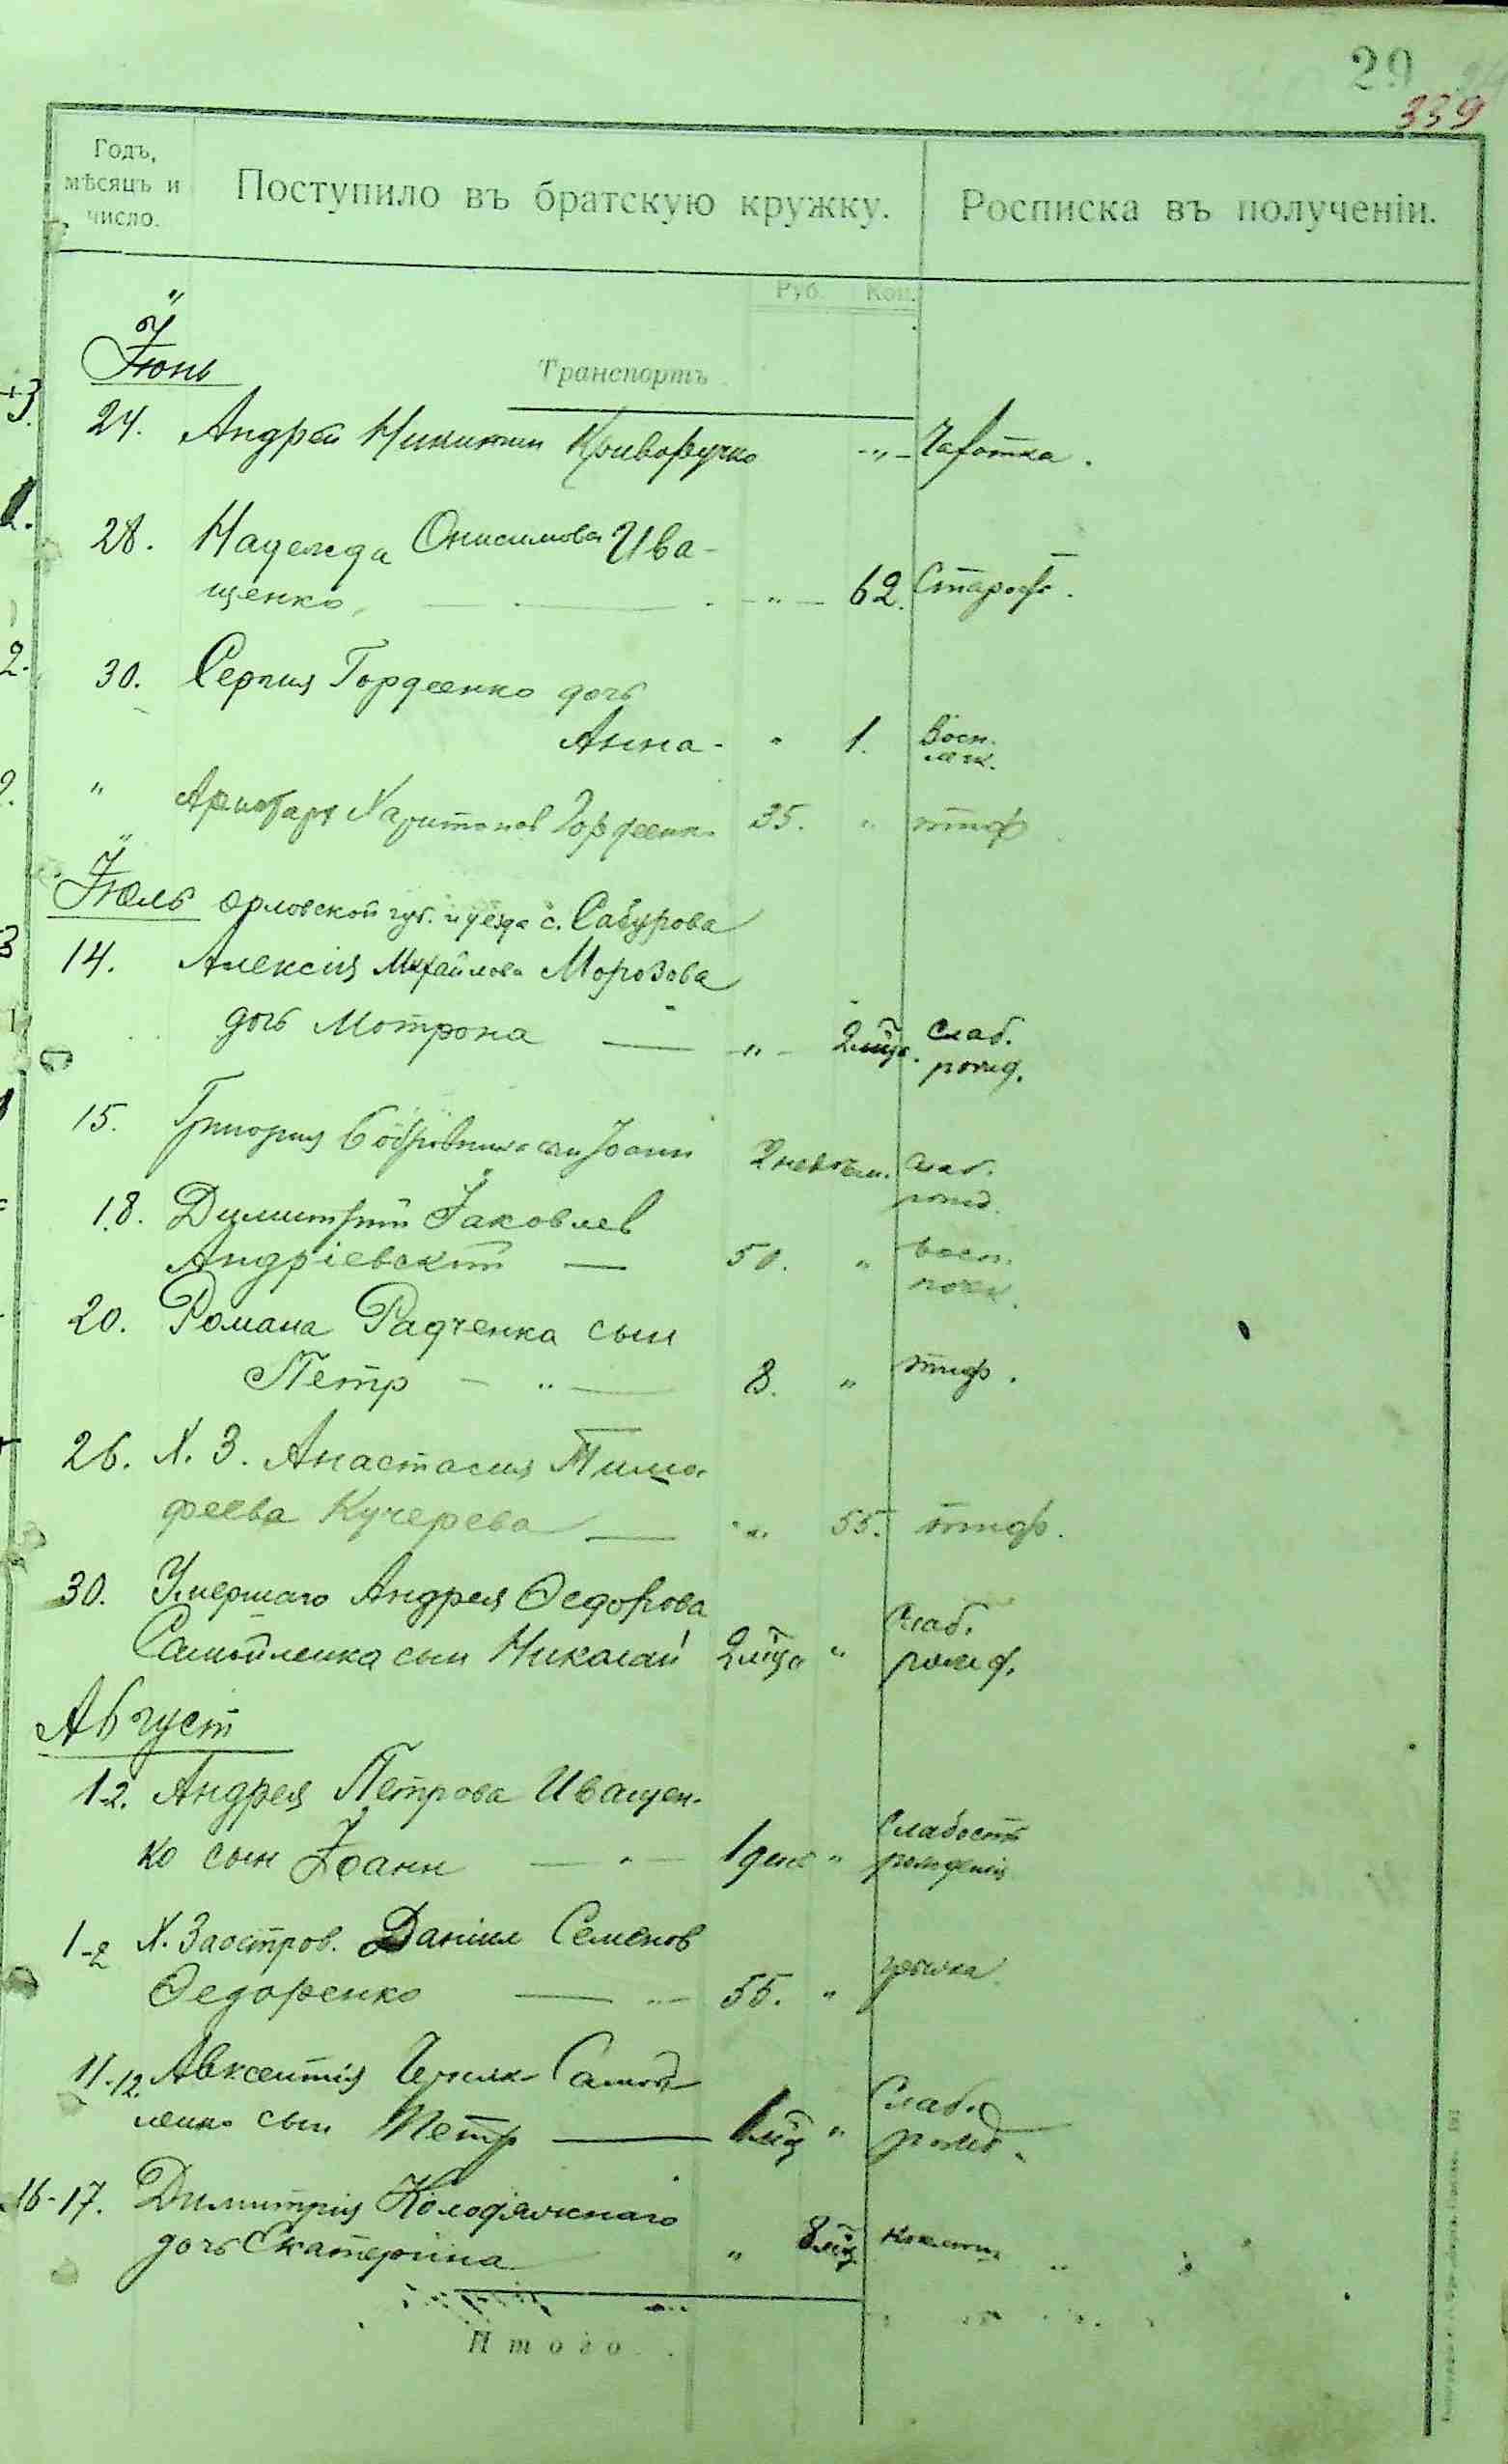 29
339
Годъ,
мѣсяцъ и
число.
Поступило въ братскую кружку.
Росписка въ полученіи.
Руб. Коп.
Іюнь
Транспортъ
24. Андрей Никитин Криворучко - „ - Чахотка.
28. Надежда Онисимова Ива-
щенко, „ 62. Старост.
30. Сергия Гордеенко дочь
Анна - „ 1. Восп.
легк.
„ Аристарх Харитонов Гордеенк. 35. „ тиф
Іюль Орловской губ. и уезда с. Сабурова
14. Алексія Михайлова Морозова
дочь Мотрона — „ - 2 мца. Слаб.
рожд.
15. Григория Бобровник сын Іоанн 2 Слаб.
рожд.
18. Димитрий Іаковлев
Андріевский — 50. „ восп.
почек.
20. Романа Радченка сын
Петр - „ — 8. „ тиф.
26. Х. З. Анастасия Тимо-
феева Кучерева — „ 55. тиф.
30. Умершаго Андрея Ѳедорова
Самойленка сын Николай 2 мца „ Слаб.
рожд.
Август
1-2. Андрея Петрова Иващен-
ко сын Іоанн — „ — 1 день „ Слабость
рождения
1-2 Х. Заостров. Даниил Семенов
Ѳедоренко — „ — 55. „ грыжа
11-12. Авксентія Самой-
ленко сын Петр — 1 мц „ Слаб.
рожд.
16-17. Димитрия Колодяжнаго
дочь Екатерина „ 8 мц
Итого